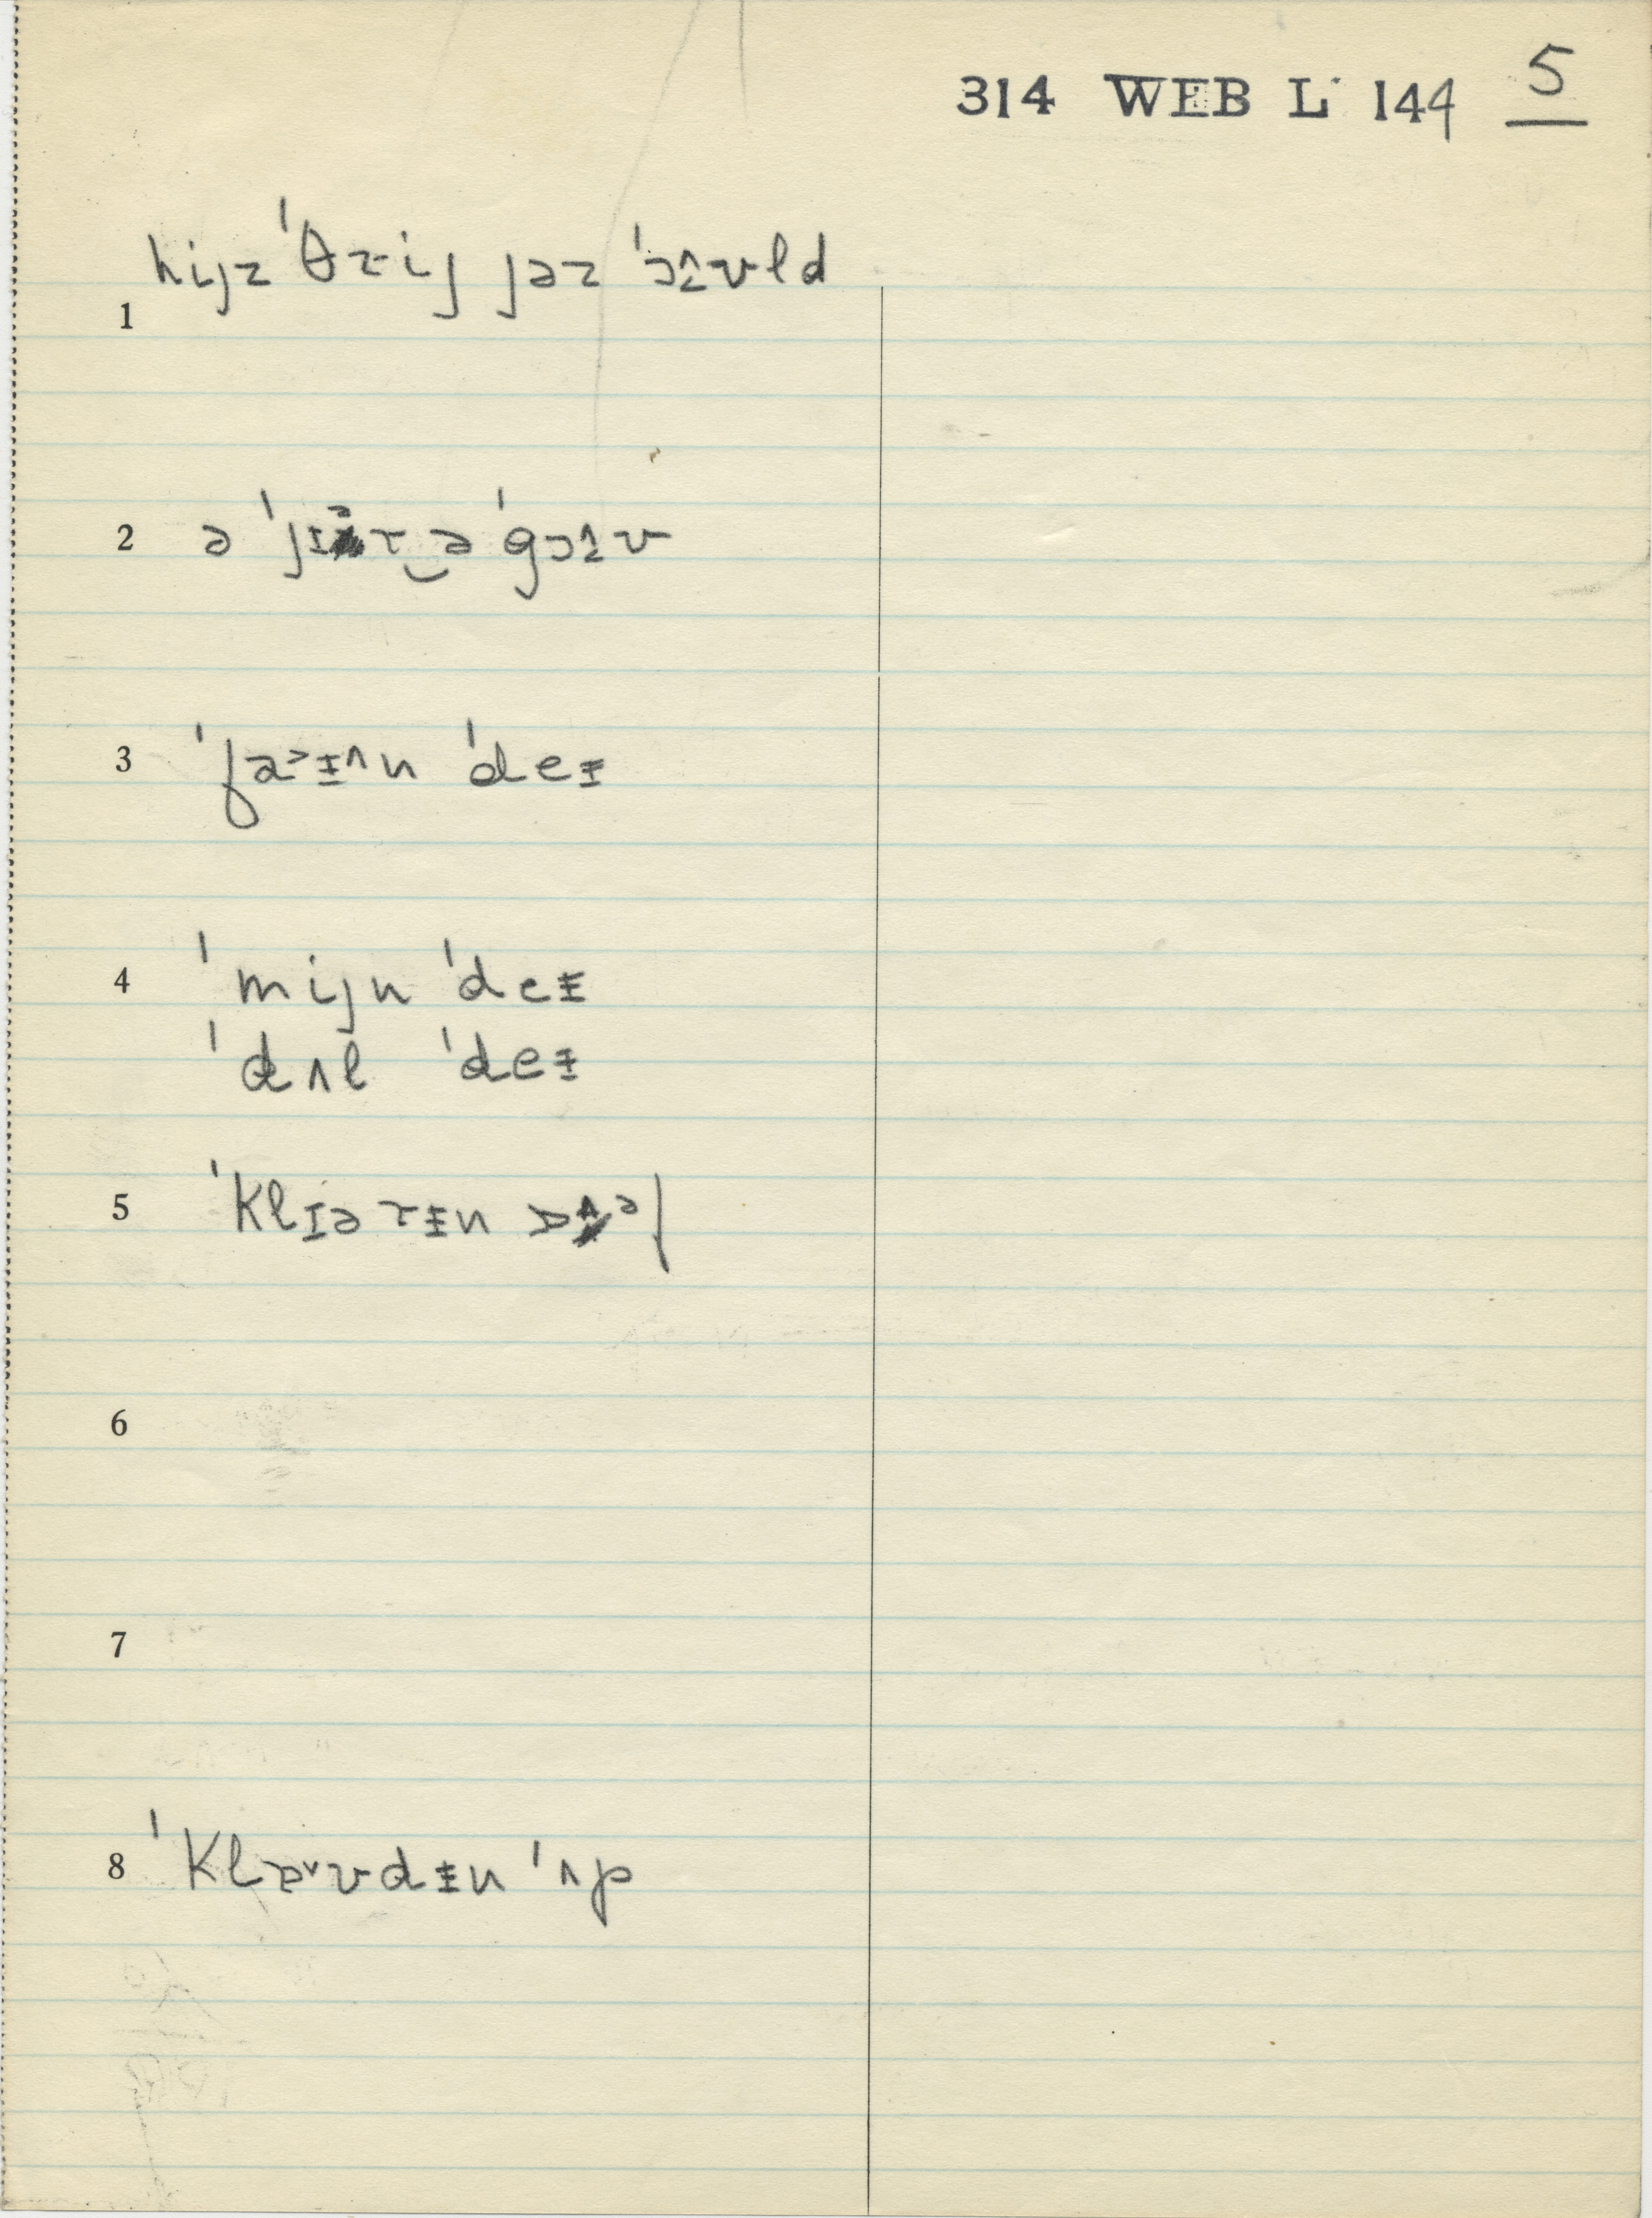 314 WEB L 144 5
1 hijz ˈθrij jəz ˈɔʊld
2 ə ˈjɪər‿ə ˈgɔʊ
3 ˈfa˃ɨ^n ˈdeɨ
4 ˈmijn ˈdeɨ
ˈdʌl ˈdeɨ
5 ˈklɪərɨn
6
7
8 ˈklæ˅ʊdɨn ˈʌp